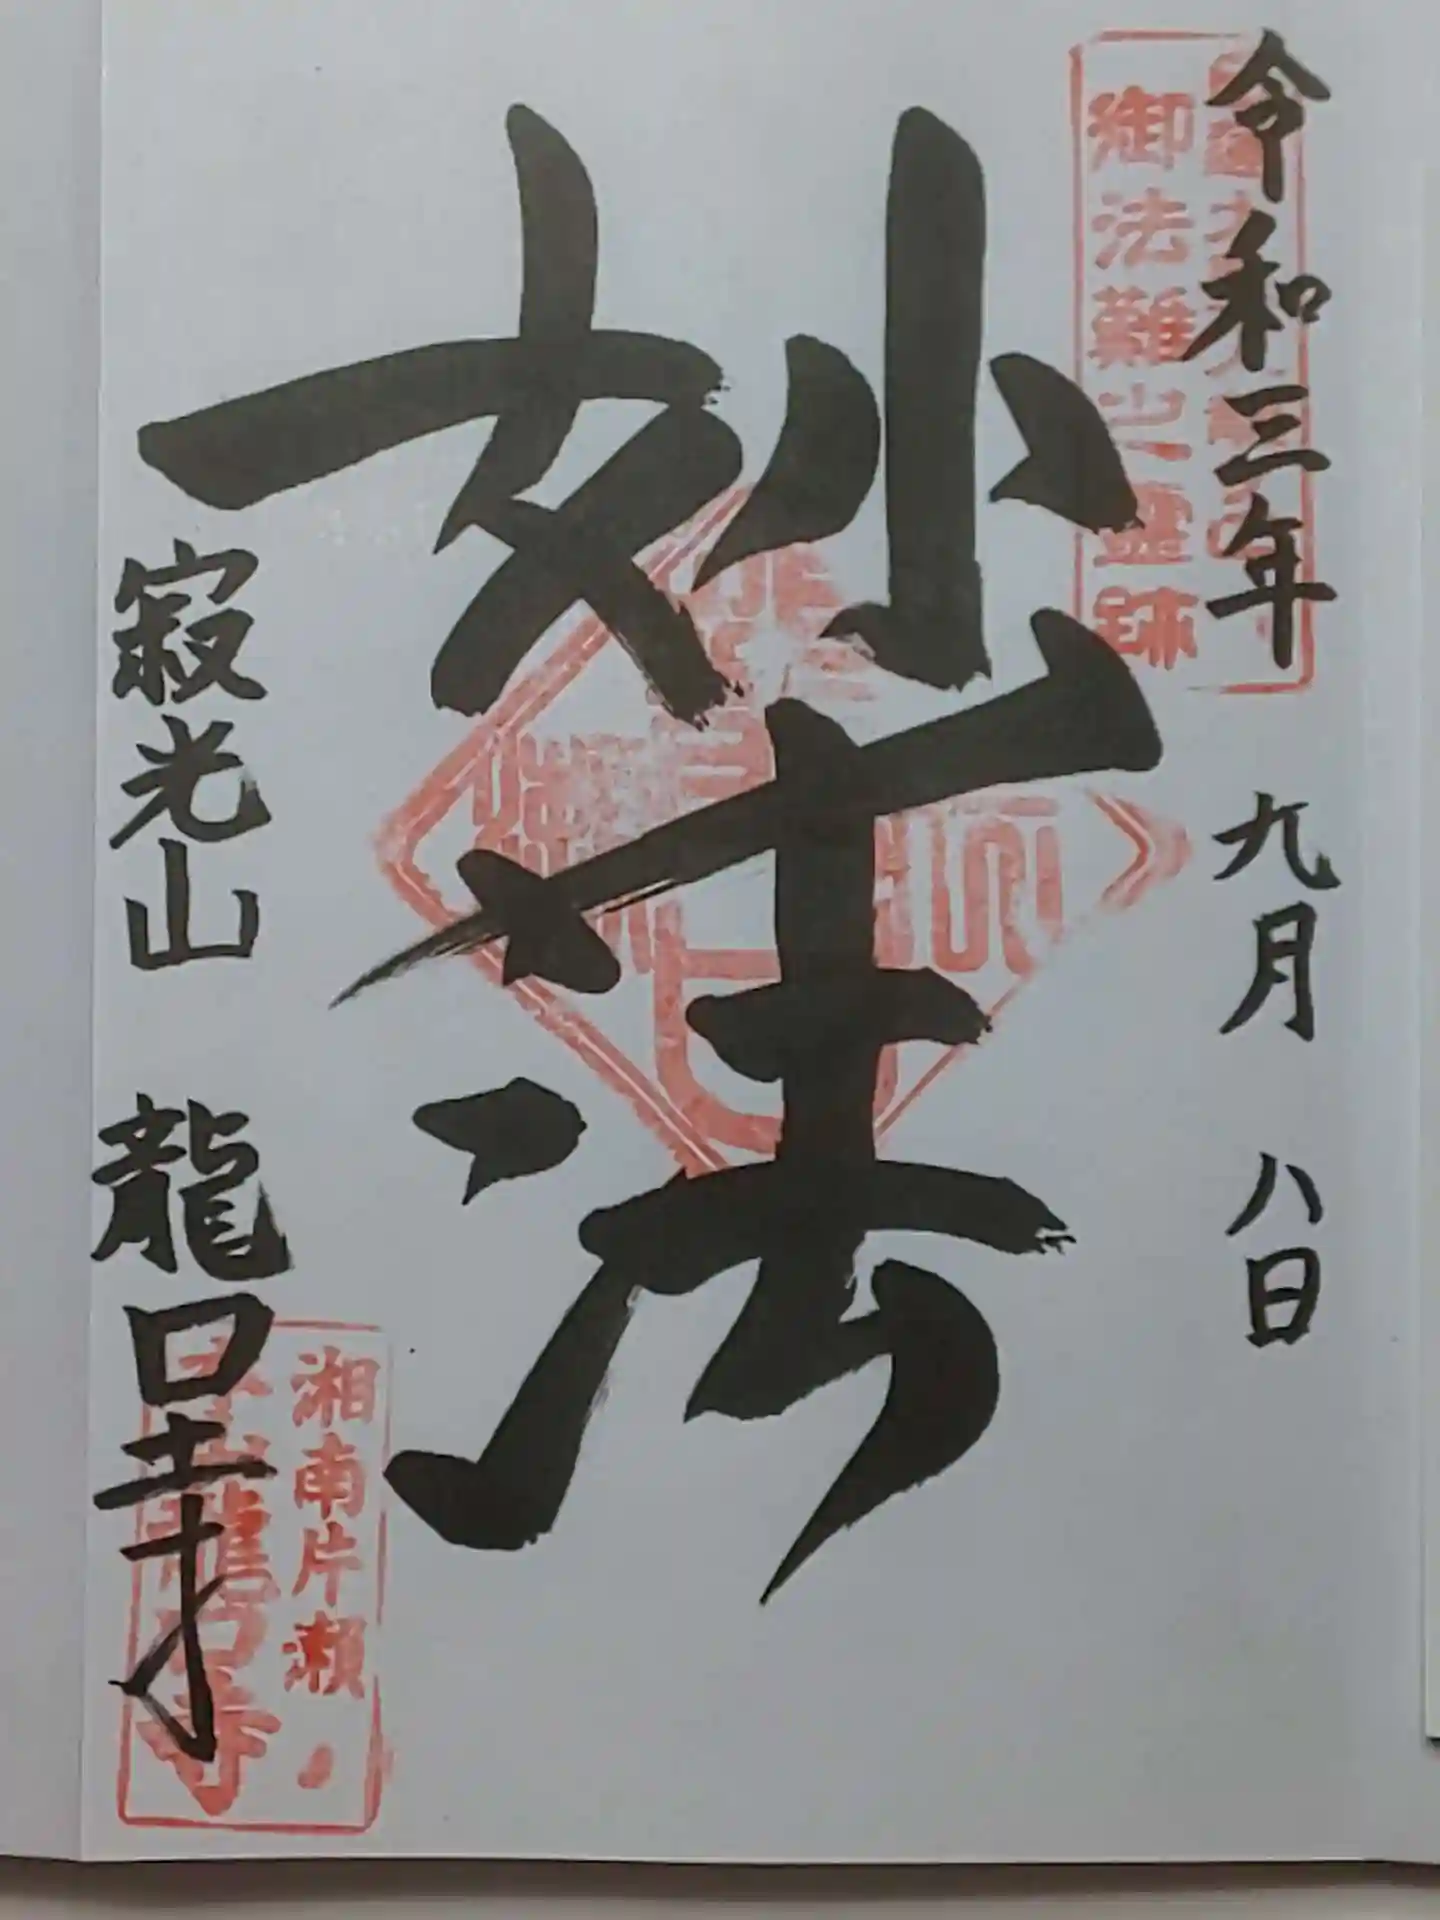 令和三年 九月 八日
御法難之霊跡
妙法
寂光山 龍口寺
湘南片瀬
龍口寺